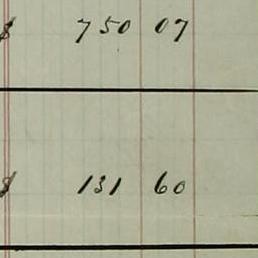 $ 750 07
$ 131 60